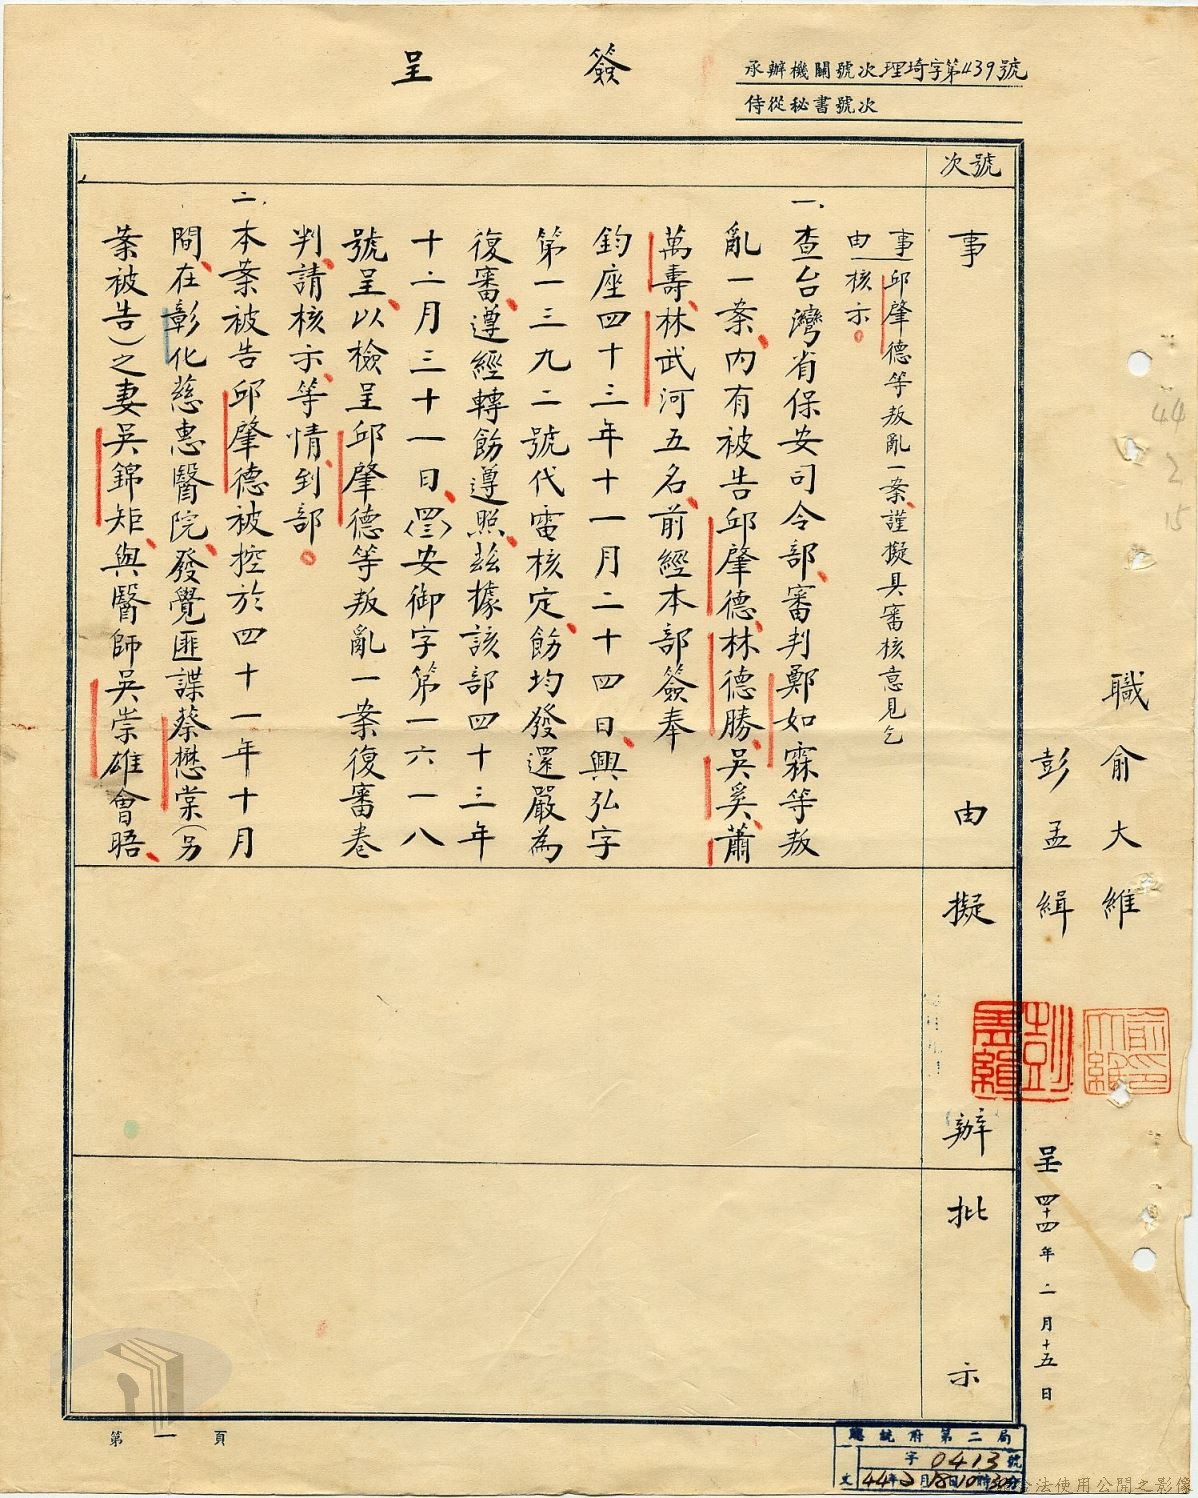 簽呈
承辦機關號次理琦字第439號
侍從秘書號次
號次
事由
擬辦
批示
事由
邱肇德等叛亂一案、謹擬具審核意見乞
核示。
一、查台灣省保安司令部、審判鄭如霖等叛
亂一案、內有被告邱肇德、林德勝、吳奚、蕭
萬壽、林武河五名、前經本部簽奉
鈞座四十三年十一月二十四日、興弘字
第一三九二號代電核定、飭均發還嚴為
復審、遵經轉飭遵照、茲據該部四十三年
十二月三十一日、(四三)安御字第一六一八
號呈、以檢呈邱肇德等叛亂一案復審卷
判、請核示、等情、到部。
二、本案被告邱肇德被控於四十一年十月
間、在彰化慈惠醫院、發覺匪諜蔡懋棠(另
案被告)之妻吳錦矩、與醫師吳崇雄會晤、
職 俞大維
彭孟緝
呈 四十四年二月十五日
俞大維印
彭孟緝
44
2
15
第一頁
總統府第二局
字0413號
文